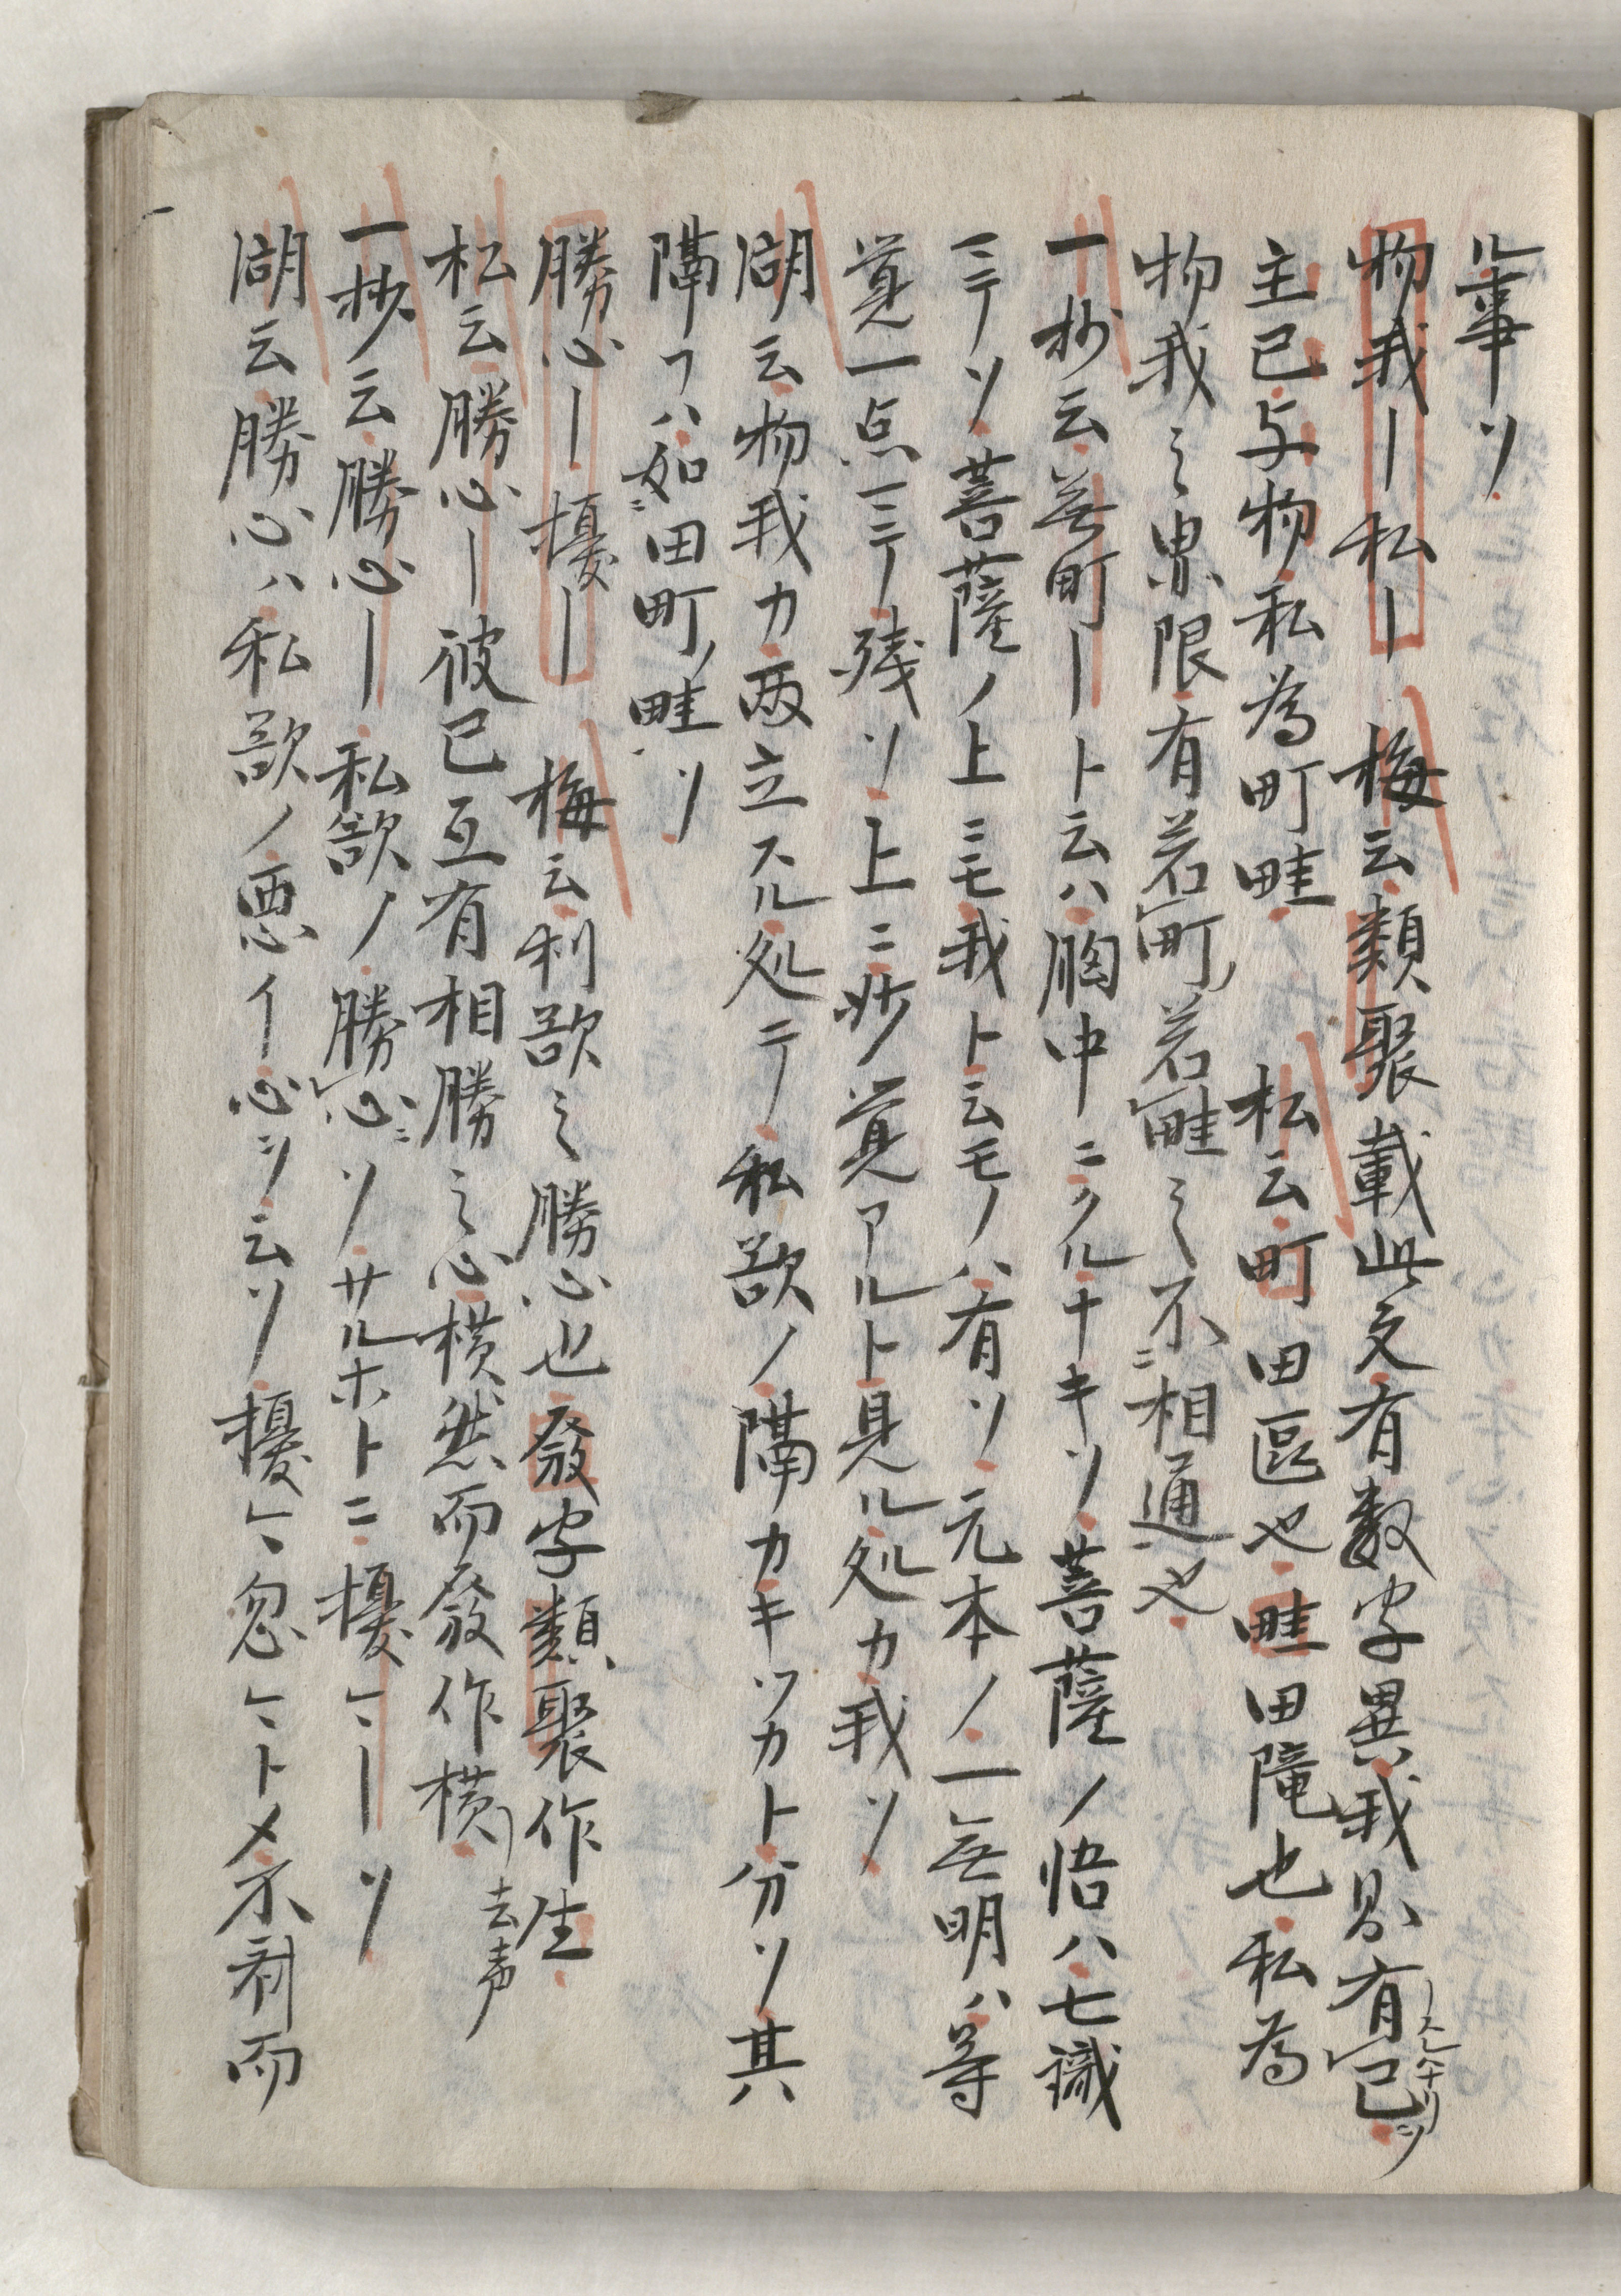 ル事ソ
物我ー私ー 梅云類聚載此文有数字異我則有己
主己与物私為町畦 松云町田区也畦田隴也私為
物我之界限有若町若畦之不相通也
一抄云若町ート云ハ胸中ニクルナキソ菩薩ノ悟ハ七識
ニテソ菩薩ノ上ニモ我ト云モノハ有ソ元本ノ一無明ハ等
覚一点ニテ残ソ上ニ妙覚アルト見ル処カ我ソ
湖云物我カ両立スル処ニテ私欲ノ隔カキツカト分ソ其
隔フハ如田町ノ畦ソ
勝心ー擾ー 梅云利欲之勝心也發字類聚作生
松云勝心ー彼己互有相勝之心横然而發作横去声
一抄云勝心ー私欲ノ勝心ソサルホトニ擾〻ーソ
湖云勝心ハ私欲ノ悪イ心ソ云ソ擾〻忽〻トメ不利而